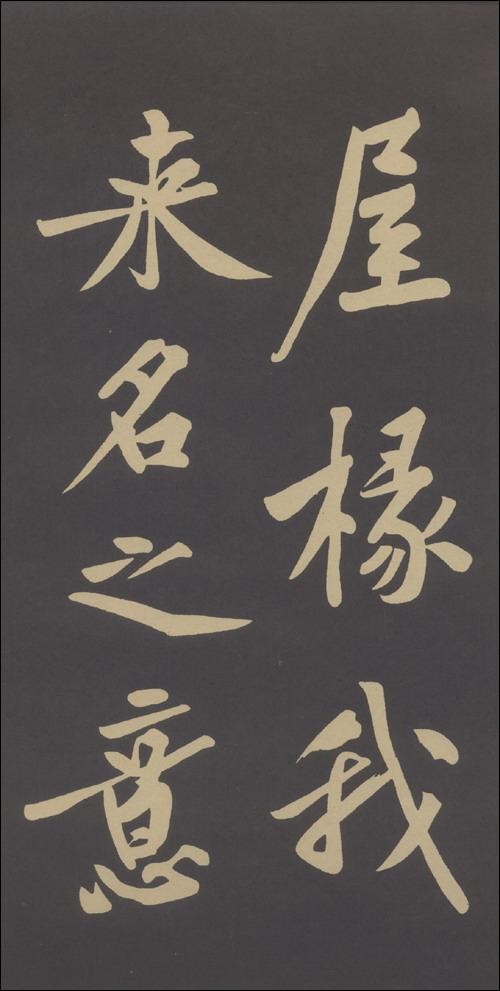 屋椽我
来名之意